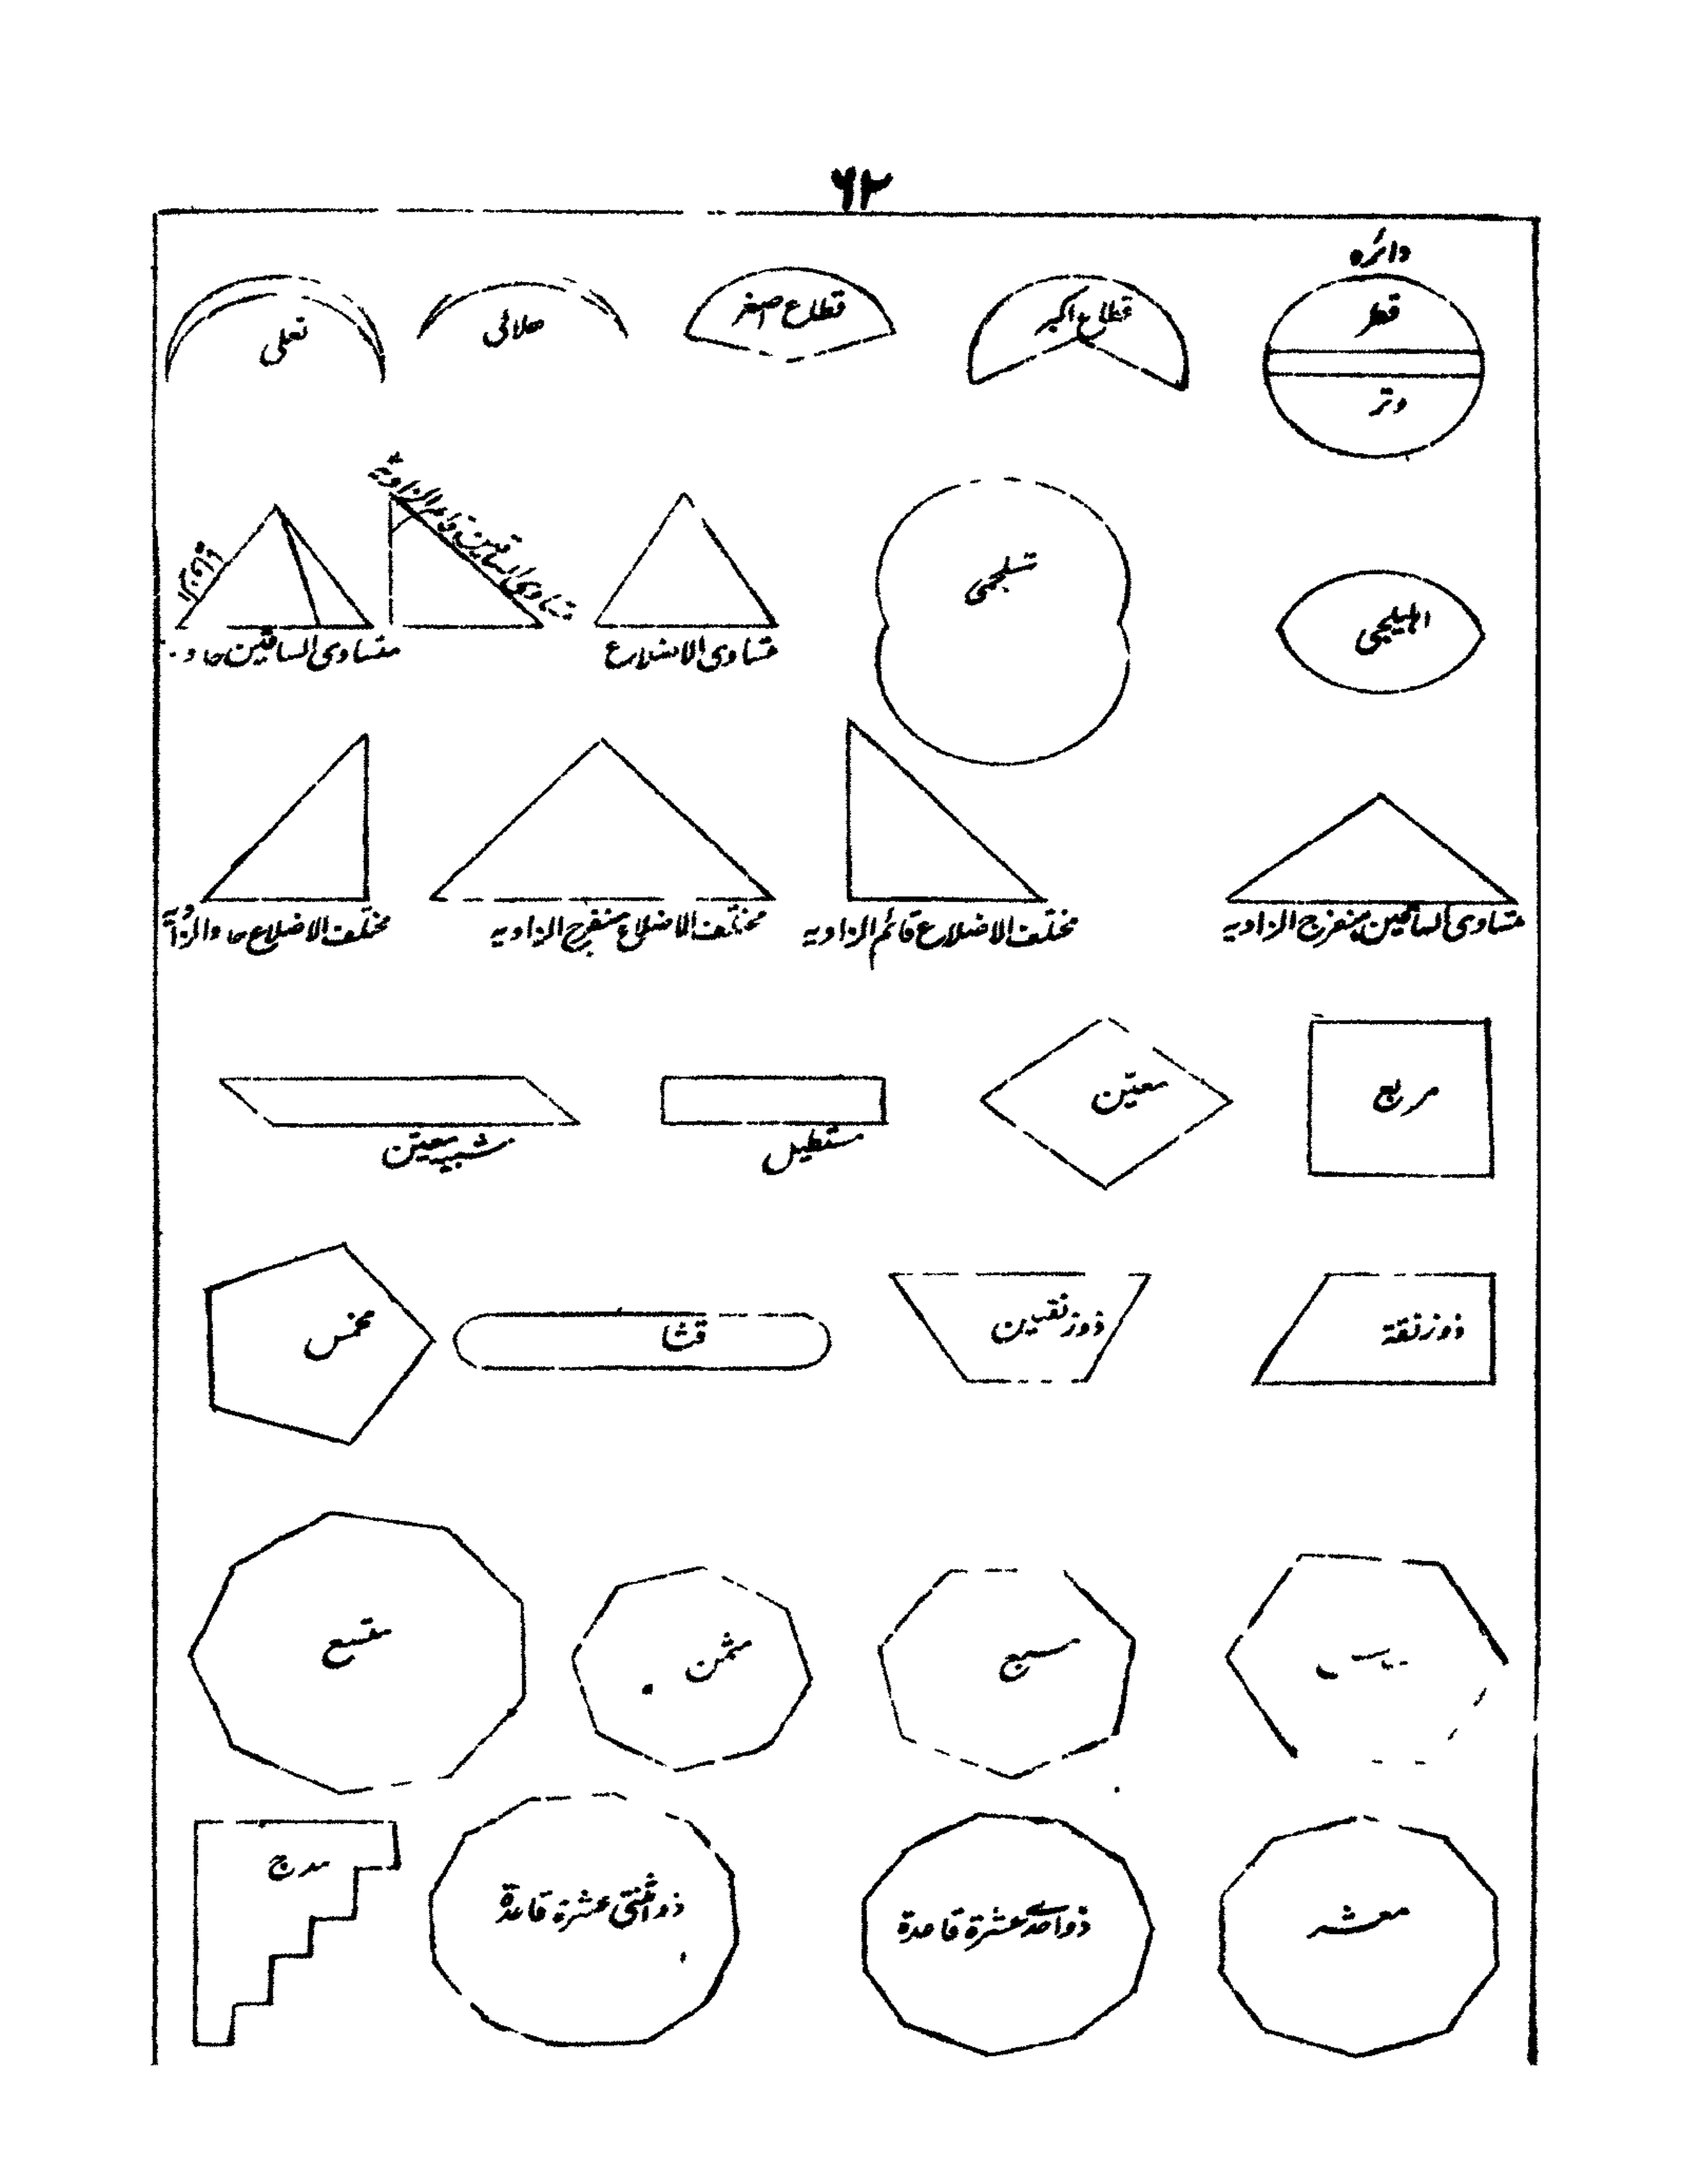 ۶۲
دائره
قطر
وتر
قطاع اكبر
قطاع اصغر
هلالى
نعلى
اهليلجى
شلجمى
متساوى الاضلاع
متساوى الساقين قائم الزاوية
متساوى الساقين حاد
متساوى الساقين منفرج الزاويه
مختلف الاضلاع قائم الزاويه
مختلف الاضلاع منفرج الزاويه
مختلف الاضلاع حاد الزاية
مربع
معيّن
مستطيل
شبيه معيّن
ذوزنقة
ذوزنقتين
قثا
مخمس
مسبع
مثمن
متسع
معشر
ذواحدى عشرة قاعدة
ذواثنتى عشرة قاعدة
مدرج